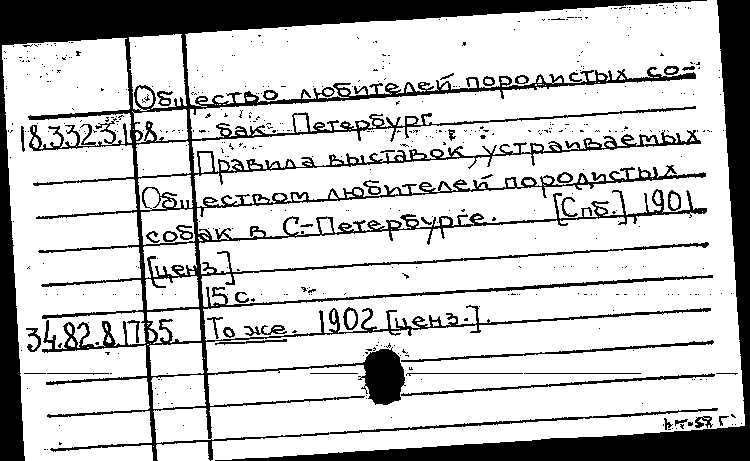 Общество любителей породистых со-
18.332.3.168. бак. Петербург.
Правила выставок, устраиваемых
Обществом любителей породистых
собак в С.-Петербурге. [Спб.], 1901
[ценз.].
15 с.
34.82.8.1735. То же. 1902 [ценз.].